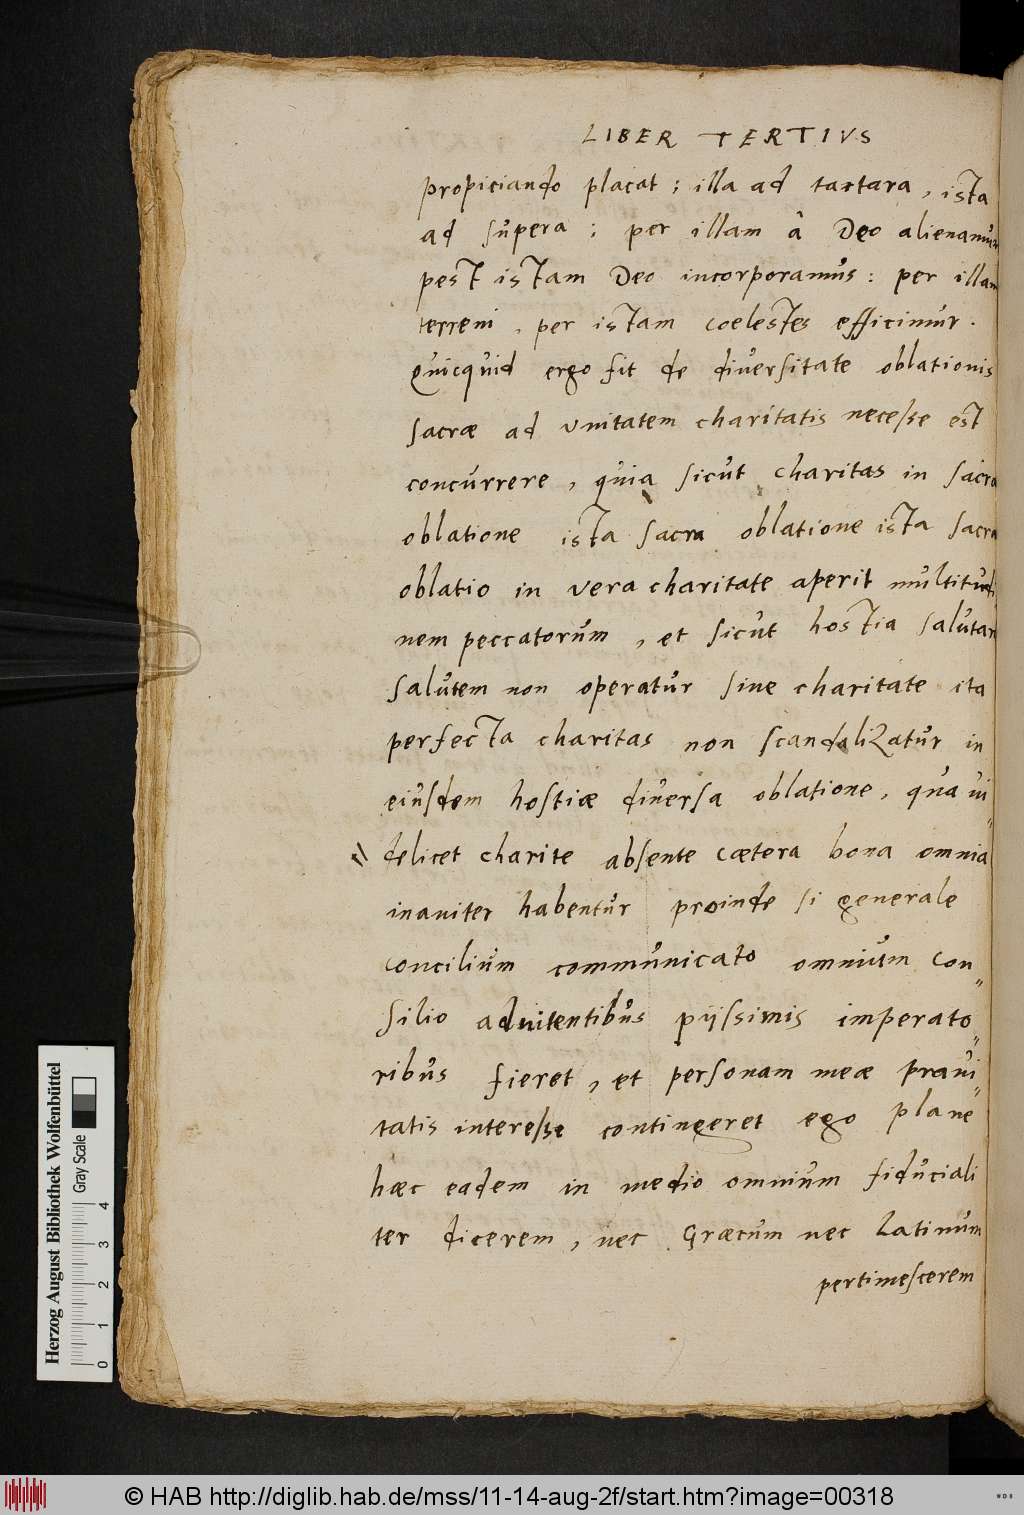 LIBER TERTIVS
propiciando placat ; illa ad tartara , ista
ad supera ; per illam â Deo alienamur
pest istam Deo incorporamus : per illam
terreni , per istam coelestes efficimur .
Quicquid ergo fit de diversitate oblationis
sacræ ad vnitatem charitatis necesse est
concurrere , quia sicut charitas in sacra
oblatione ista sacra oblatione ista sacra
oblatio in vera charitate aperit multitudi
nem peccatorum , et sicut hostia salutari
salutem non operatur sine charitate ita
perfecta charitas non scandalizatur in
eiusdem hostiæ diuersa oblatione , qua vi
delicet charite absente cætera bona omnia
inaniter habentur proinde si generale
concilium communicato omnium con=
silio adnitentibus piissimis imperato=
ribus fieret , et personam meæ praui=
tatis interesse contingeret ego plane
hæc eadem in medio omnium fiduciali
ter dicerem , nec Græcum nec Latinum
pertimescerem
Herzog August Bibliothek Wolfenbüttel
Gray Scale
0 1 2 3 4
© HAB http://diglib.hab.de/mss/11-14-aug-2f/start.htm?image=00318